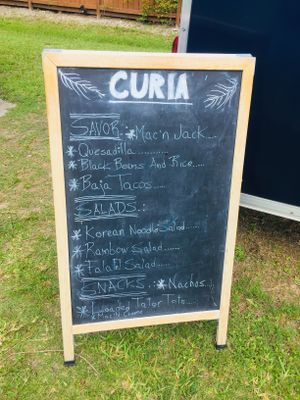 CURIA
SAVOR: *Mac'n Jack....
*Quesadilla............
*Black Beans And Rice.....
*Baja Tacos.....
SALADS:
*Korean Noodle Salad.....
*Rambow Salad......
*Falafel Salad.....
SNACKS: *Nachos...
*Loaded Tater Tots....